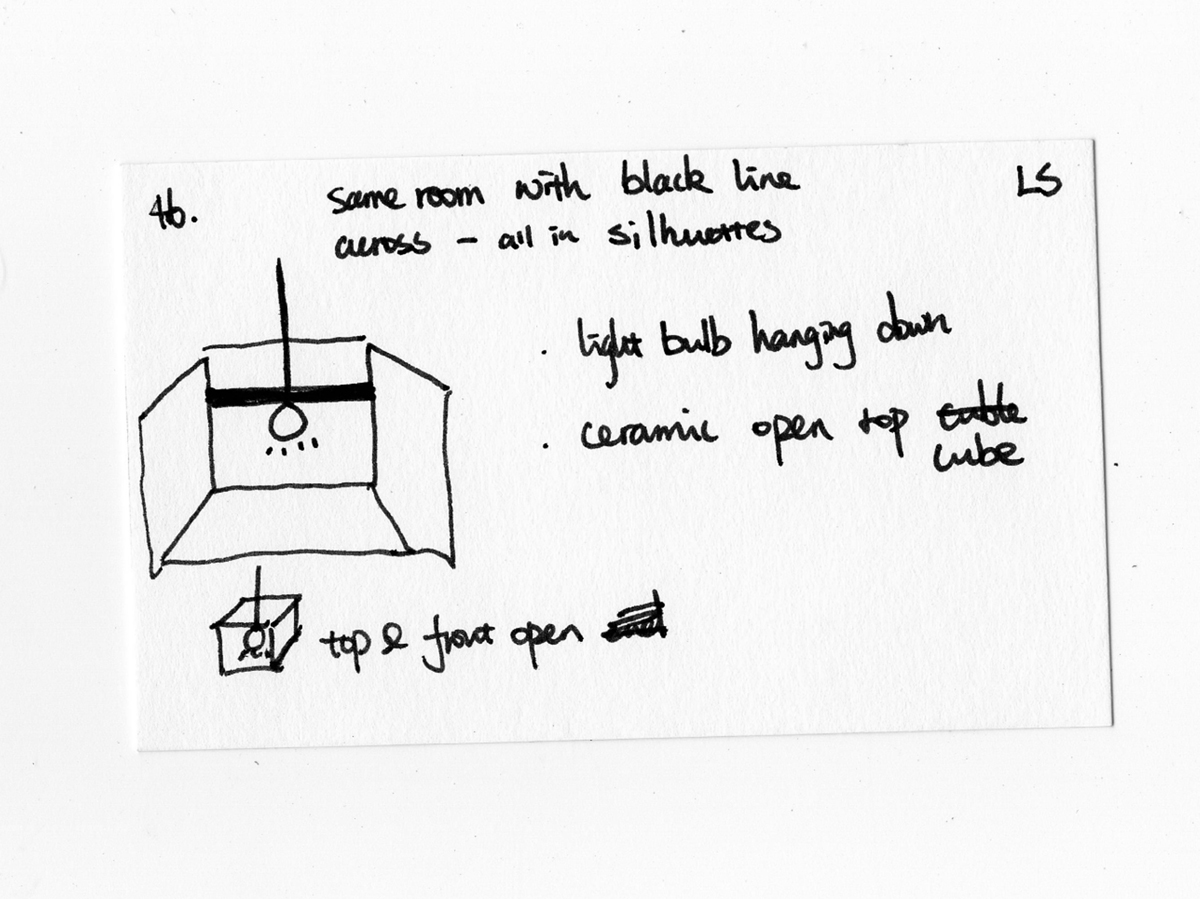 46.
same room with black line
LS
across - all in silhuottes
· light bulb hanging down
· ceramic open top cable
cube
top & front open